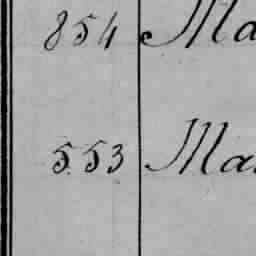 854 Ma
553 Ma